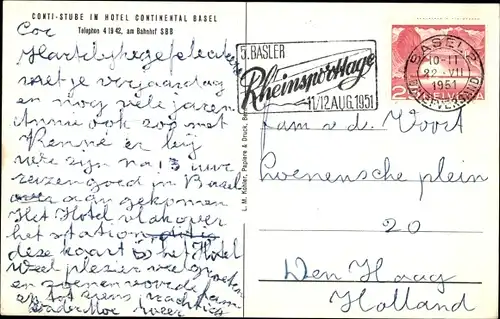 CONTI-STUBE IM HOTEL CONTINENTAL BASEL
Telephon 4 19 42, am Bahnhof SBB
Cor
Hartelyk gefeliciteerd
met je verjaardag
en nog vele jaren.
Renné er bij
we zijn na 13 uur
reizen goed in Basel
aan gekomen
Het Hotel vlak over
het station
deze kaart is het Hotel
veel plezier veel groeten
en zoenen voor de fam
en tot ziens
L. M. Kohler, Papiere & Druck, Be
5. BASLER
Rheinsporttage
11/12. AUG. 1951
BASEL 2
10-11
22. VII
1951
BRIEFVERSAND
HELVETIA
Fam v. d. Voort
Loenensche plein
20
Den Haag
Holland